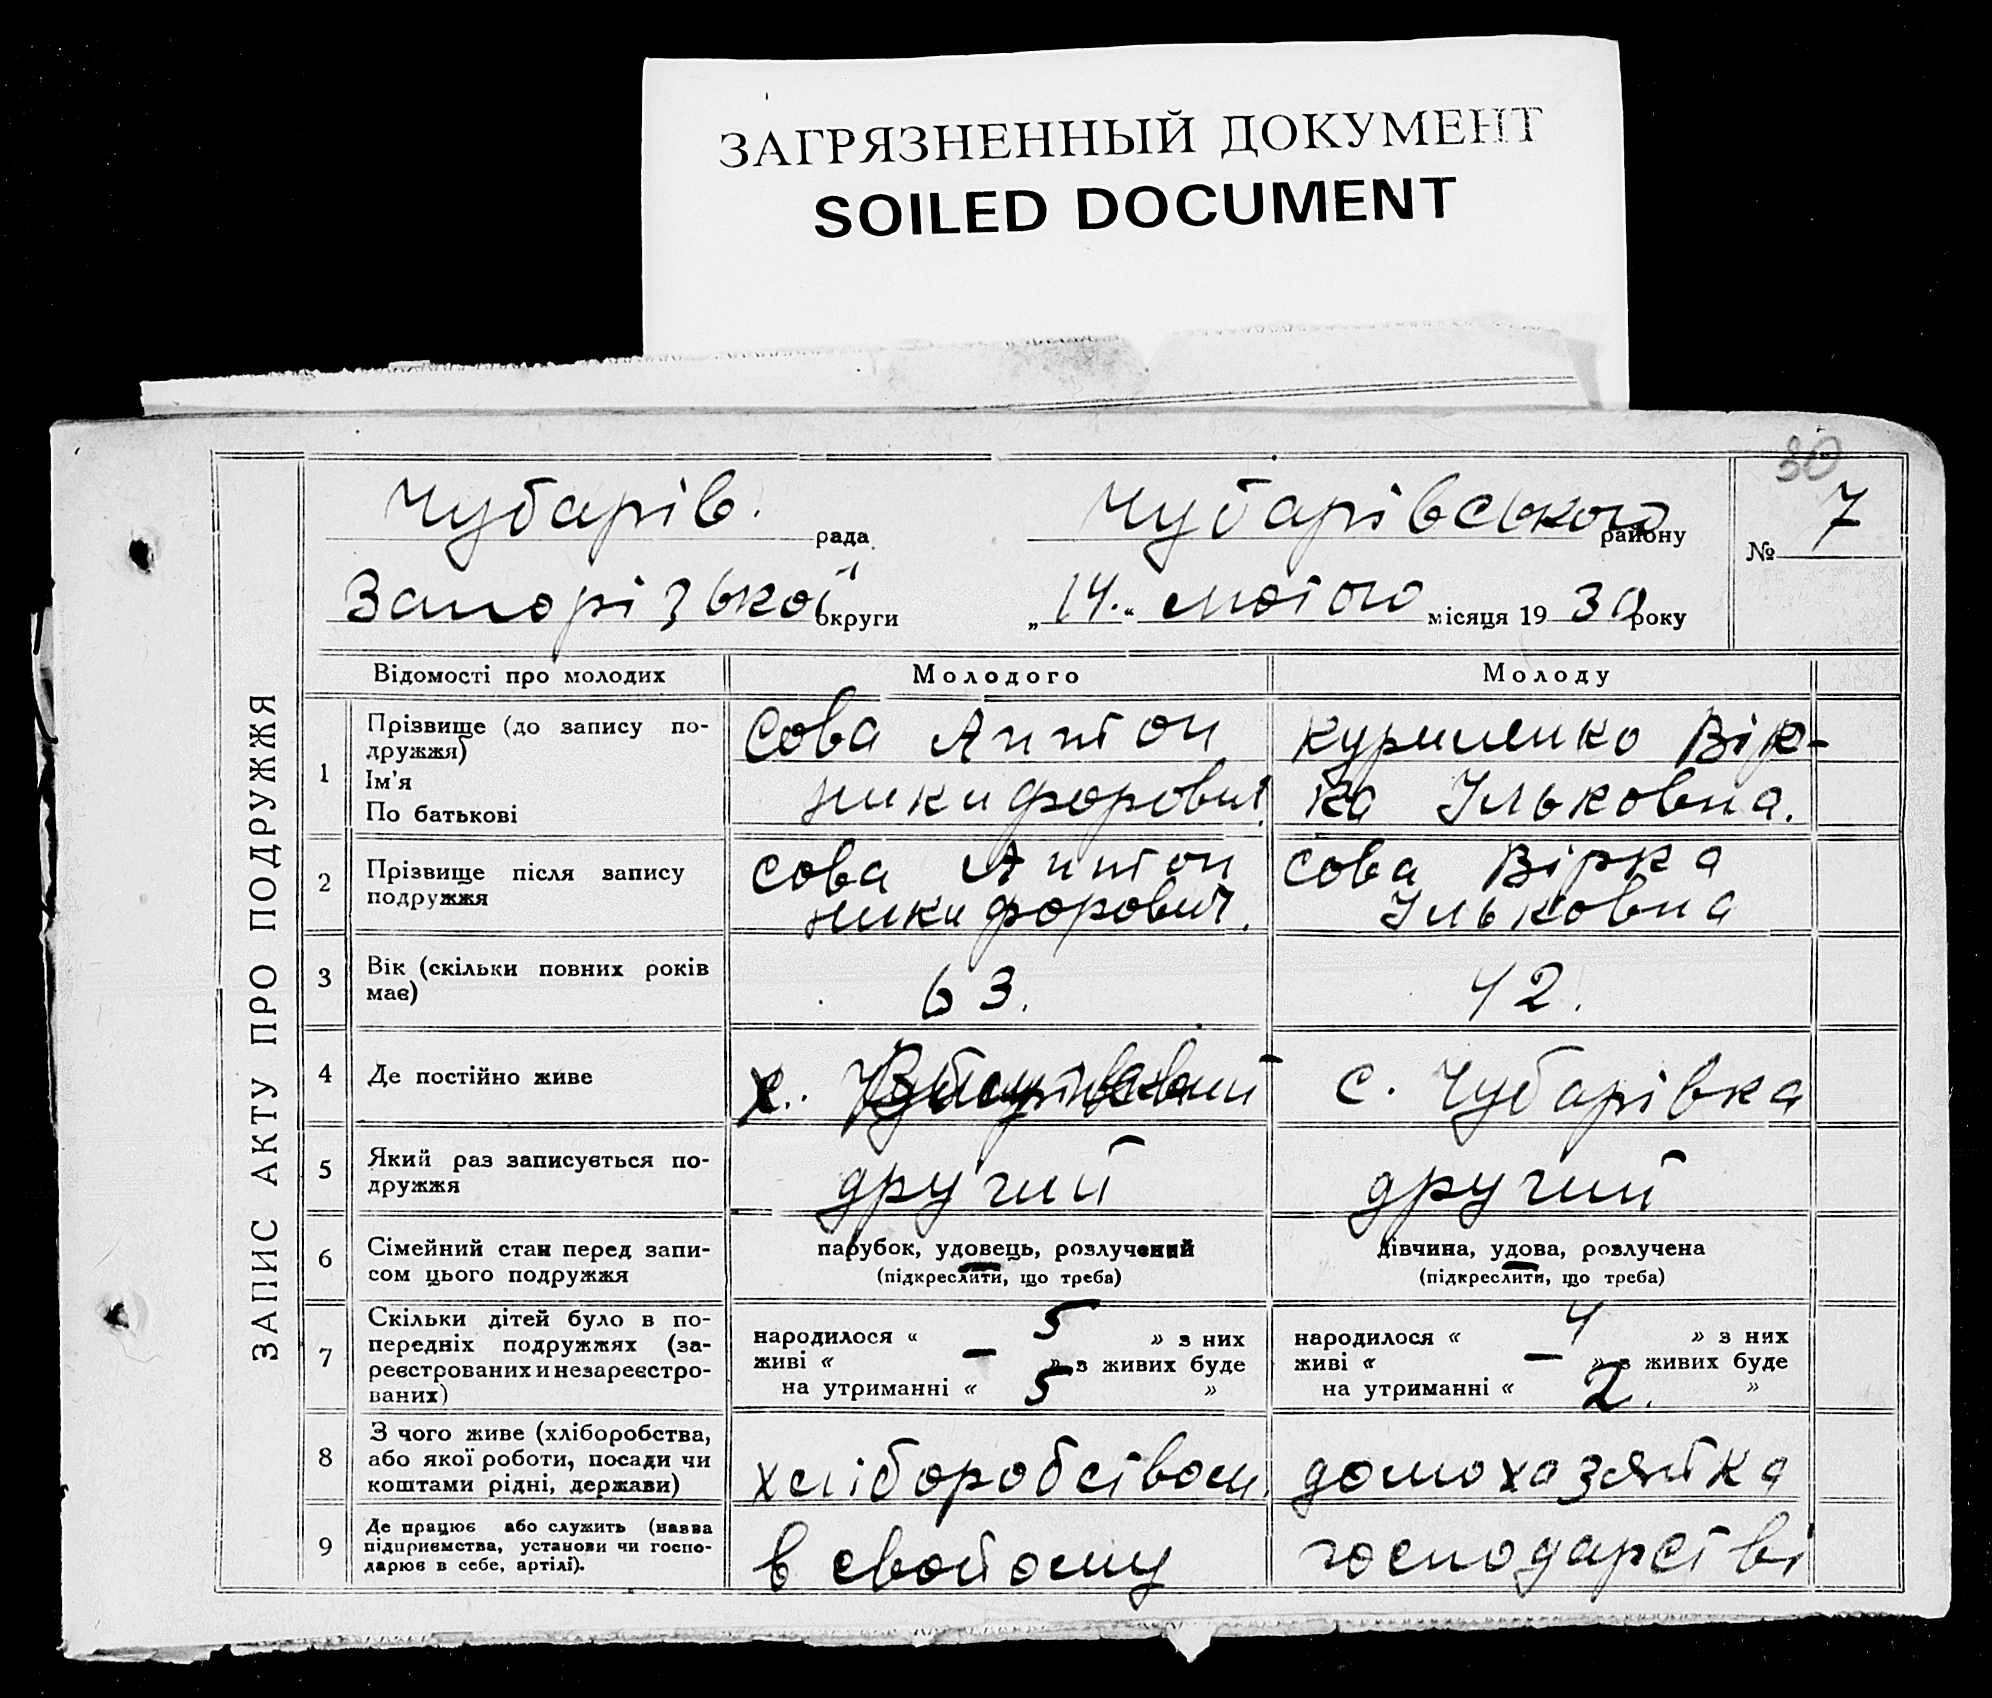 ЗАГРЯЗНЕННЫЙ ДОКУМЕНТ
SOILED DOCUMENT
30
ЗАПИС АКТУ ПРО ПОДРУЖЖЯ
Чубарів. рада Чубарівського району № 7
Запорізької округи „14." лютого місяця 1930 року
Відомості про молодих Молодого Молоду
1 Прізвище (до запису по-
дружжя)
Ім'я
По батькові
Сова Антон
Никифорович
Куриленко Вір-
ка Ільковна.
2 Прізвище після запису
подружжя
Сова Антон
Никифорович.
Сова Вірка
Ільковна
3 Вік (скільки повних років
має)
63.
42.
4 Де постійно живе
х.
с. Чубарівка
5 Який раз записується по-
дружжя
другий
другий
6 Сімейний стан перед запи-
сом цього подружжя
парубок, удовець, розлучений
(підкреслити, що треба)
дівчина, удова, розлучена
(підкреслити, що треба)
7 Скільки дітей було в по-
передніх подружжях (за-
реєстрованих и незареєстро-
ваних)
народилося « 5 » з них
живі « – » з живих буде
на утриманні « 5 »
народилося « 4 » з них
живі « – » з живих буде
на утриманні « 2. »
8 З чого живе (хліборобства,
або якої роботи, посади чи
коштами рідні, держави)
хліборобством.
домохазяйка
9 Де працює або служить (назва
підприємства, установи чи госпо-
дарює в себе, артілі).
в свойому
господарстві